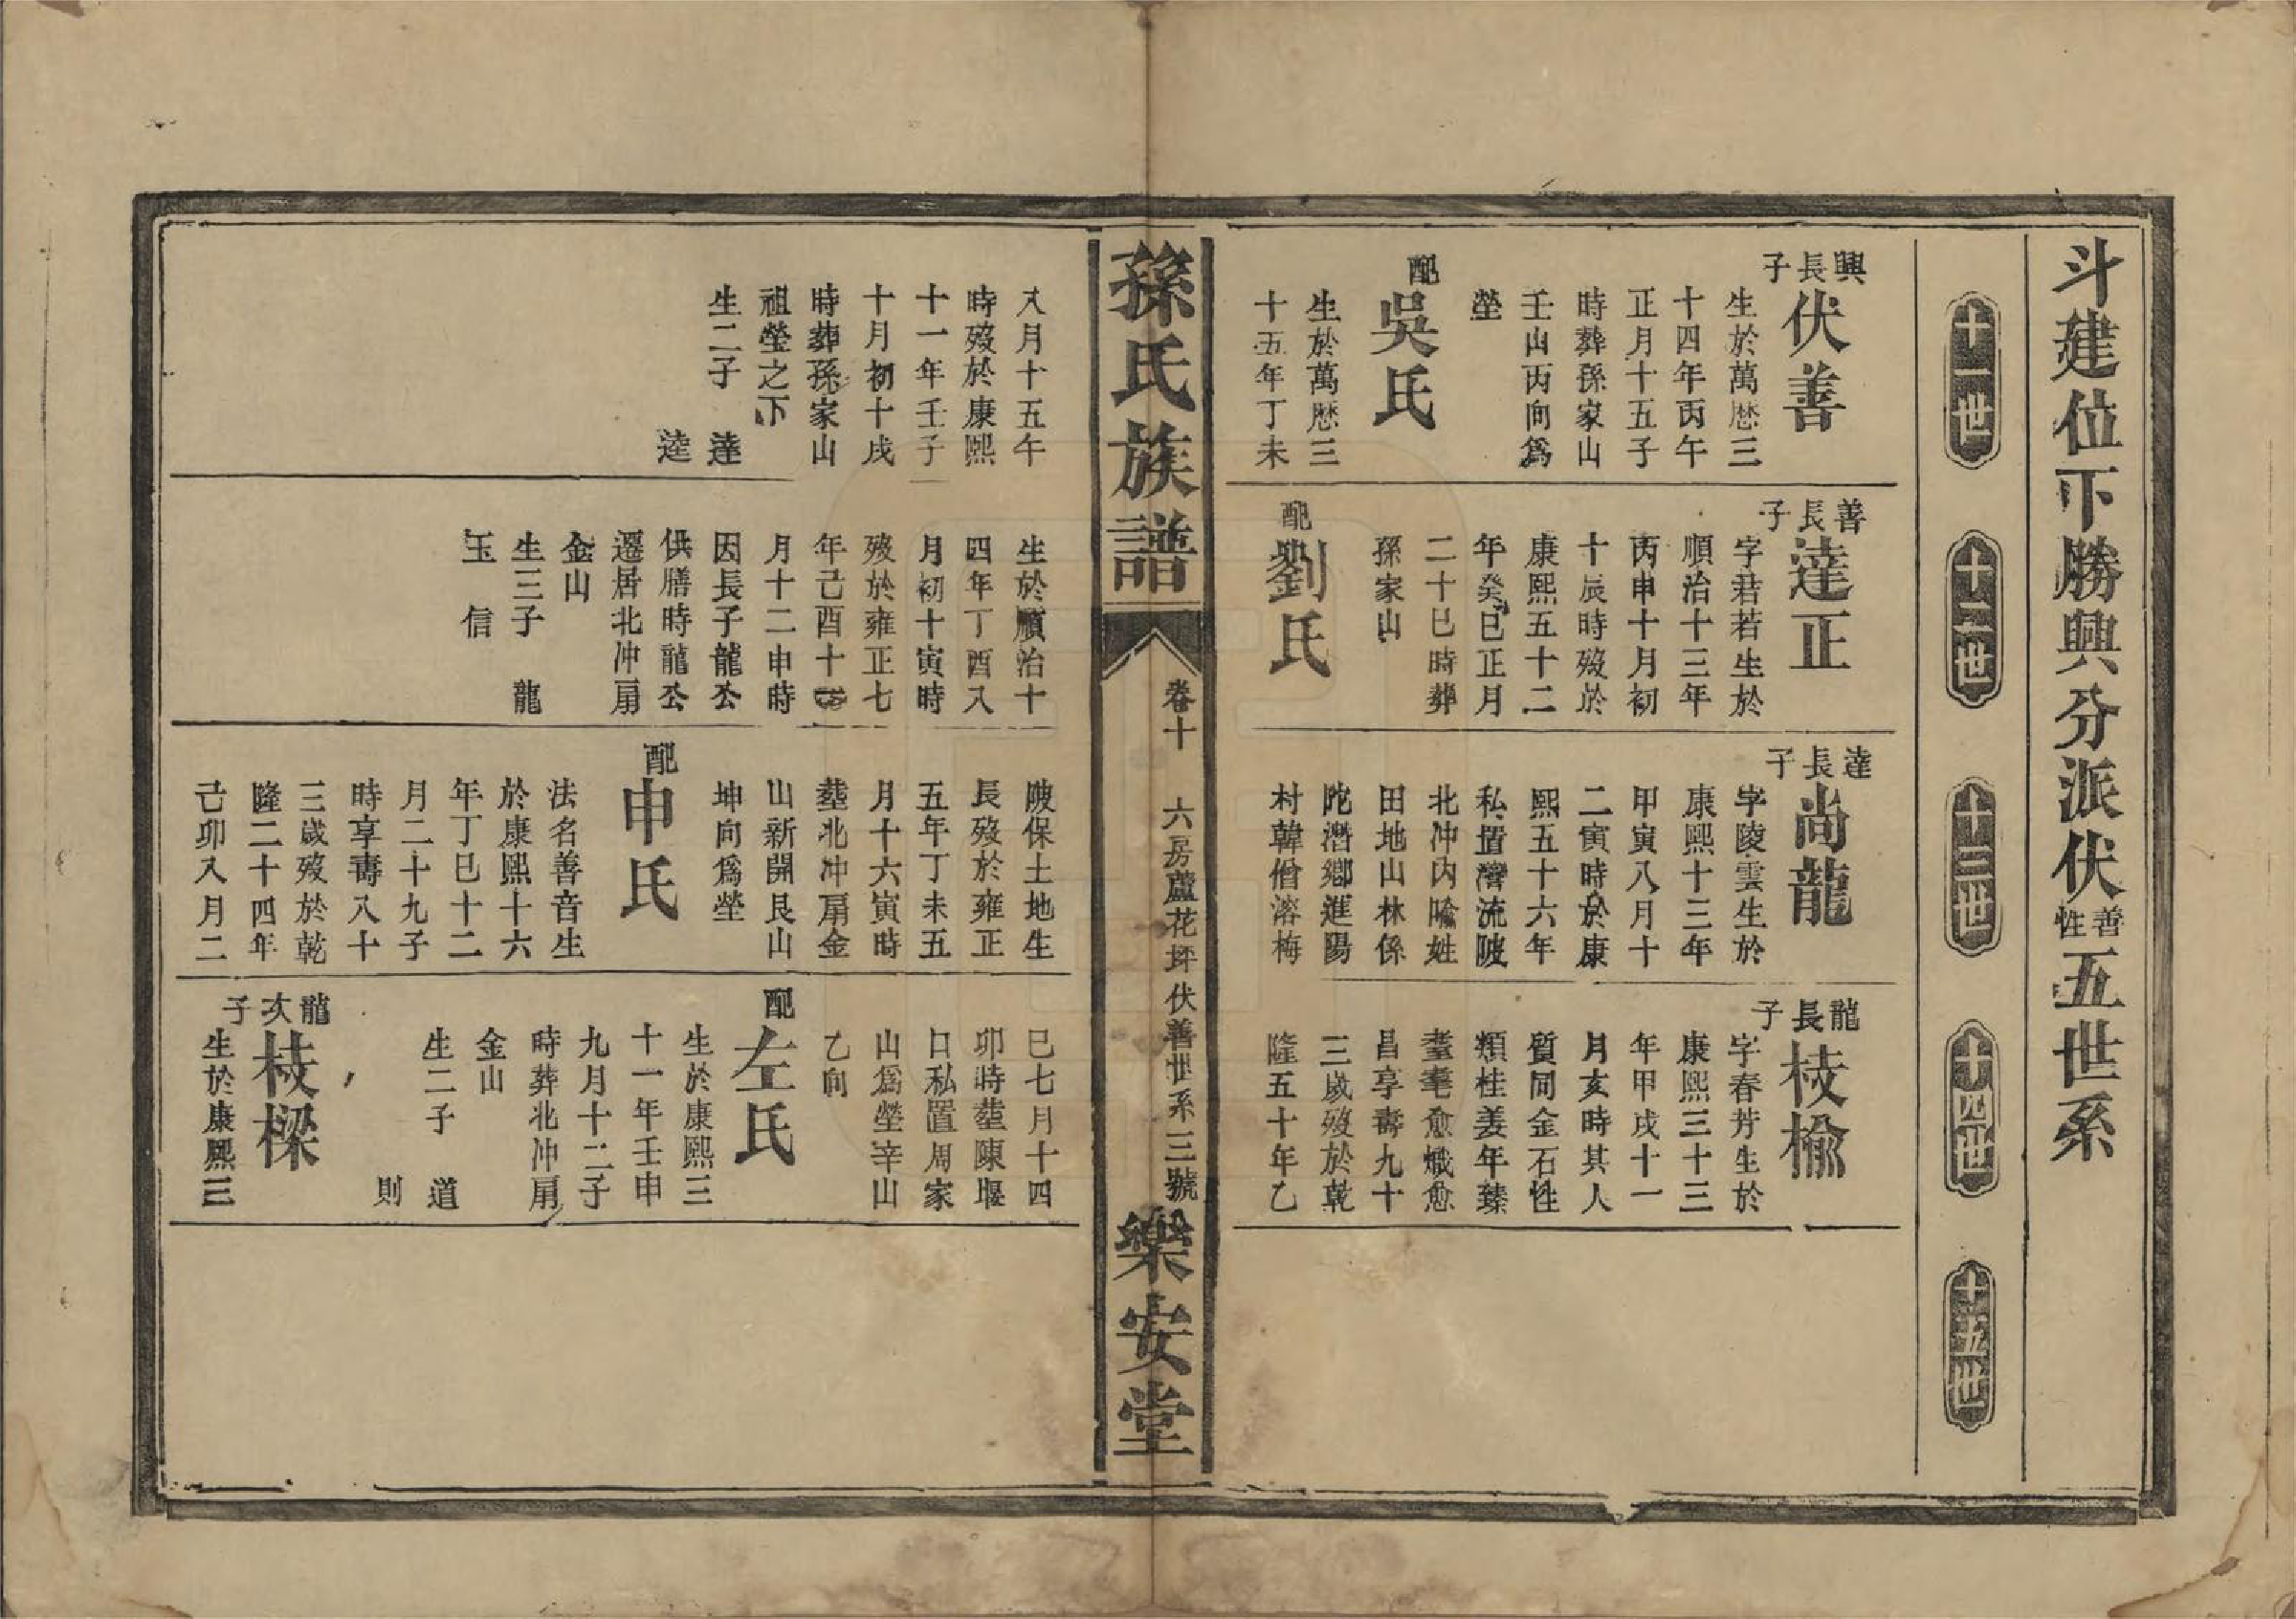 斗建位下勝興分派伏善性五世系
十一世
十二世
十三世
十四世
十五世
興長子
伏善
生於萬歴三
十四年丙午
正月十五子
時葬孫家山
壬山丙向爲
塋
配
吳氏
生於萬歴三
十五年丁未
八月十五午
時歿於康熙
十一年壬子
十月初十戌
時葬孫家山
祖塋之下
生二子 達
逵
善長子
達正
字君若生於
順治十三年
丙申十月初
十辰時歿於
康熙五十二
年癸巳正月
二十巳時葬
孫家山
配
劉氏
生於順治十
四年丁酉八
月初十寅時
歿於雍正七
年己酉十
月十二申時
因長子龍公
供膳時龍公
遷居北冲扇
金山
生三子 龍
玉 信
達長子
尚龍
字陵雲生於
康熙十三年
甲寅八月十
二寅時於康
熙五十六年
私置灣流陂
北冲内喻姓
田地山林係
陀潛鄉進陽
村韓僧溶梅
陂保土地生
長歿於雍正
五年丁未五
月十六寅時
塟北冲扇金
山新開艮山
坤向爲塋
配
申氏
法名善音生
於康熙十六
年丁巳十二
月二十九子
時享壽八十
三歲歿於乾
隆二十四年
己卯八月二
龍長子
枝楡
字春芳生於
康熙三十三
年甲戌十一
月亥時其人
質同金石性
類桂姜年臻
耄耄愈熾愈
昌享壽九十
三歲歿於乾
隆五十年乙
巳七月十四
卯時塟陳堰
口私置周家
山爲塋辛山
乙向
配
左氏
生於康熙三
十一年壬申
九月十二子
時葬北冲扇
金山
生二子 道
則
龍次子
枝樑
生於康熙三
孫氏族譜
卷十 六房蘆花坪伏善世系三號
樂安堂